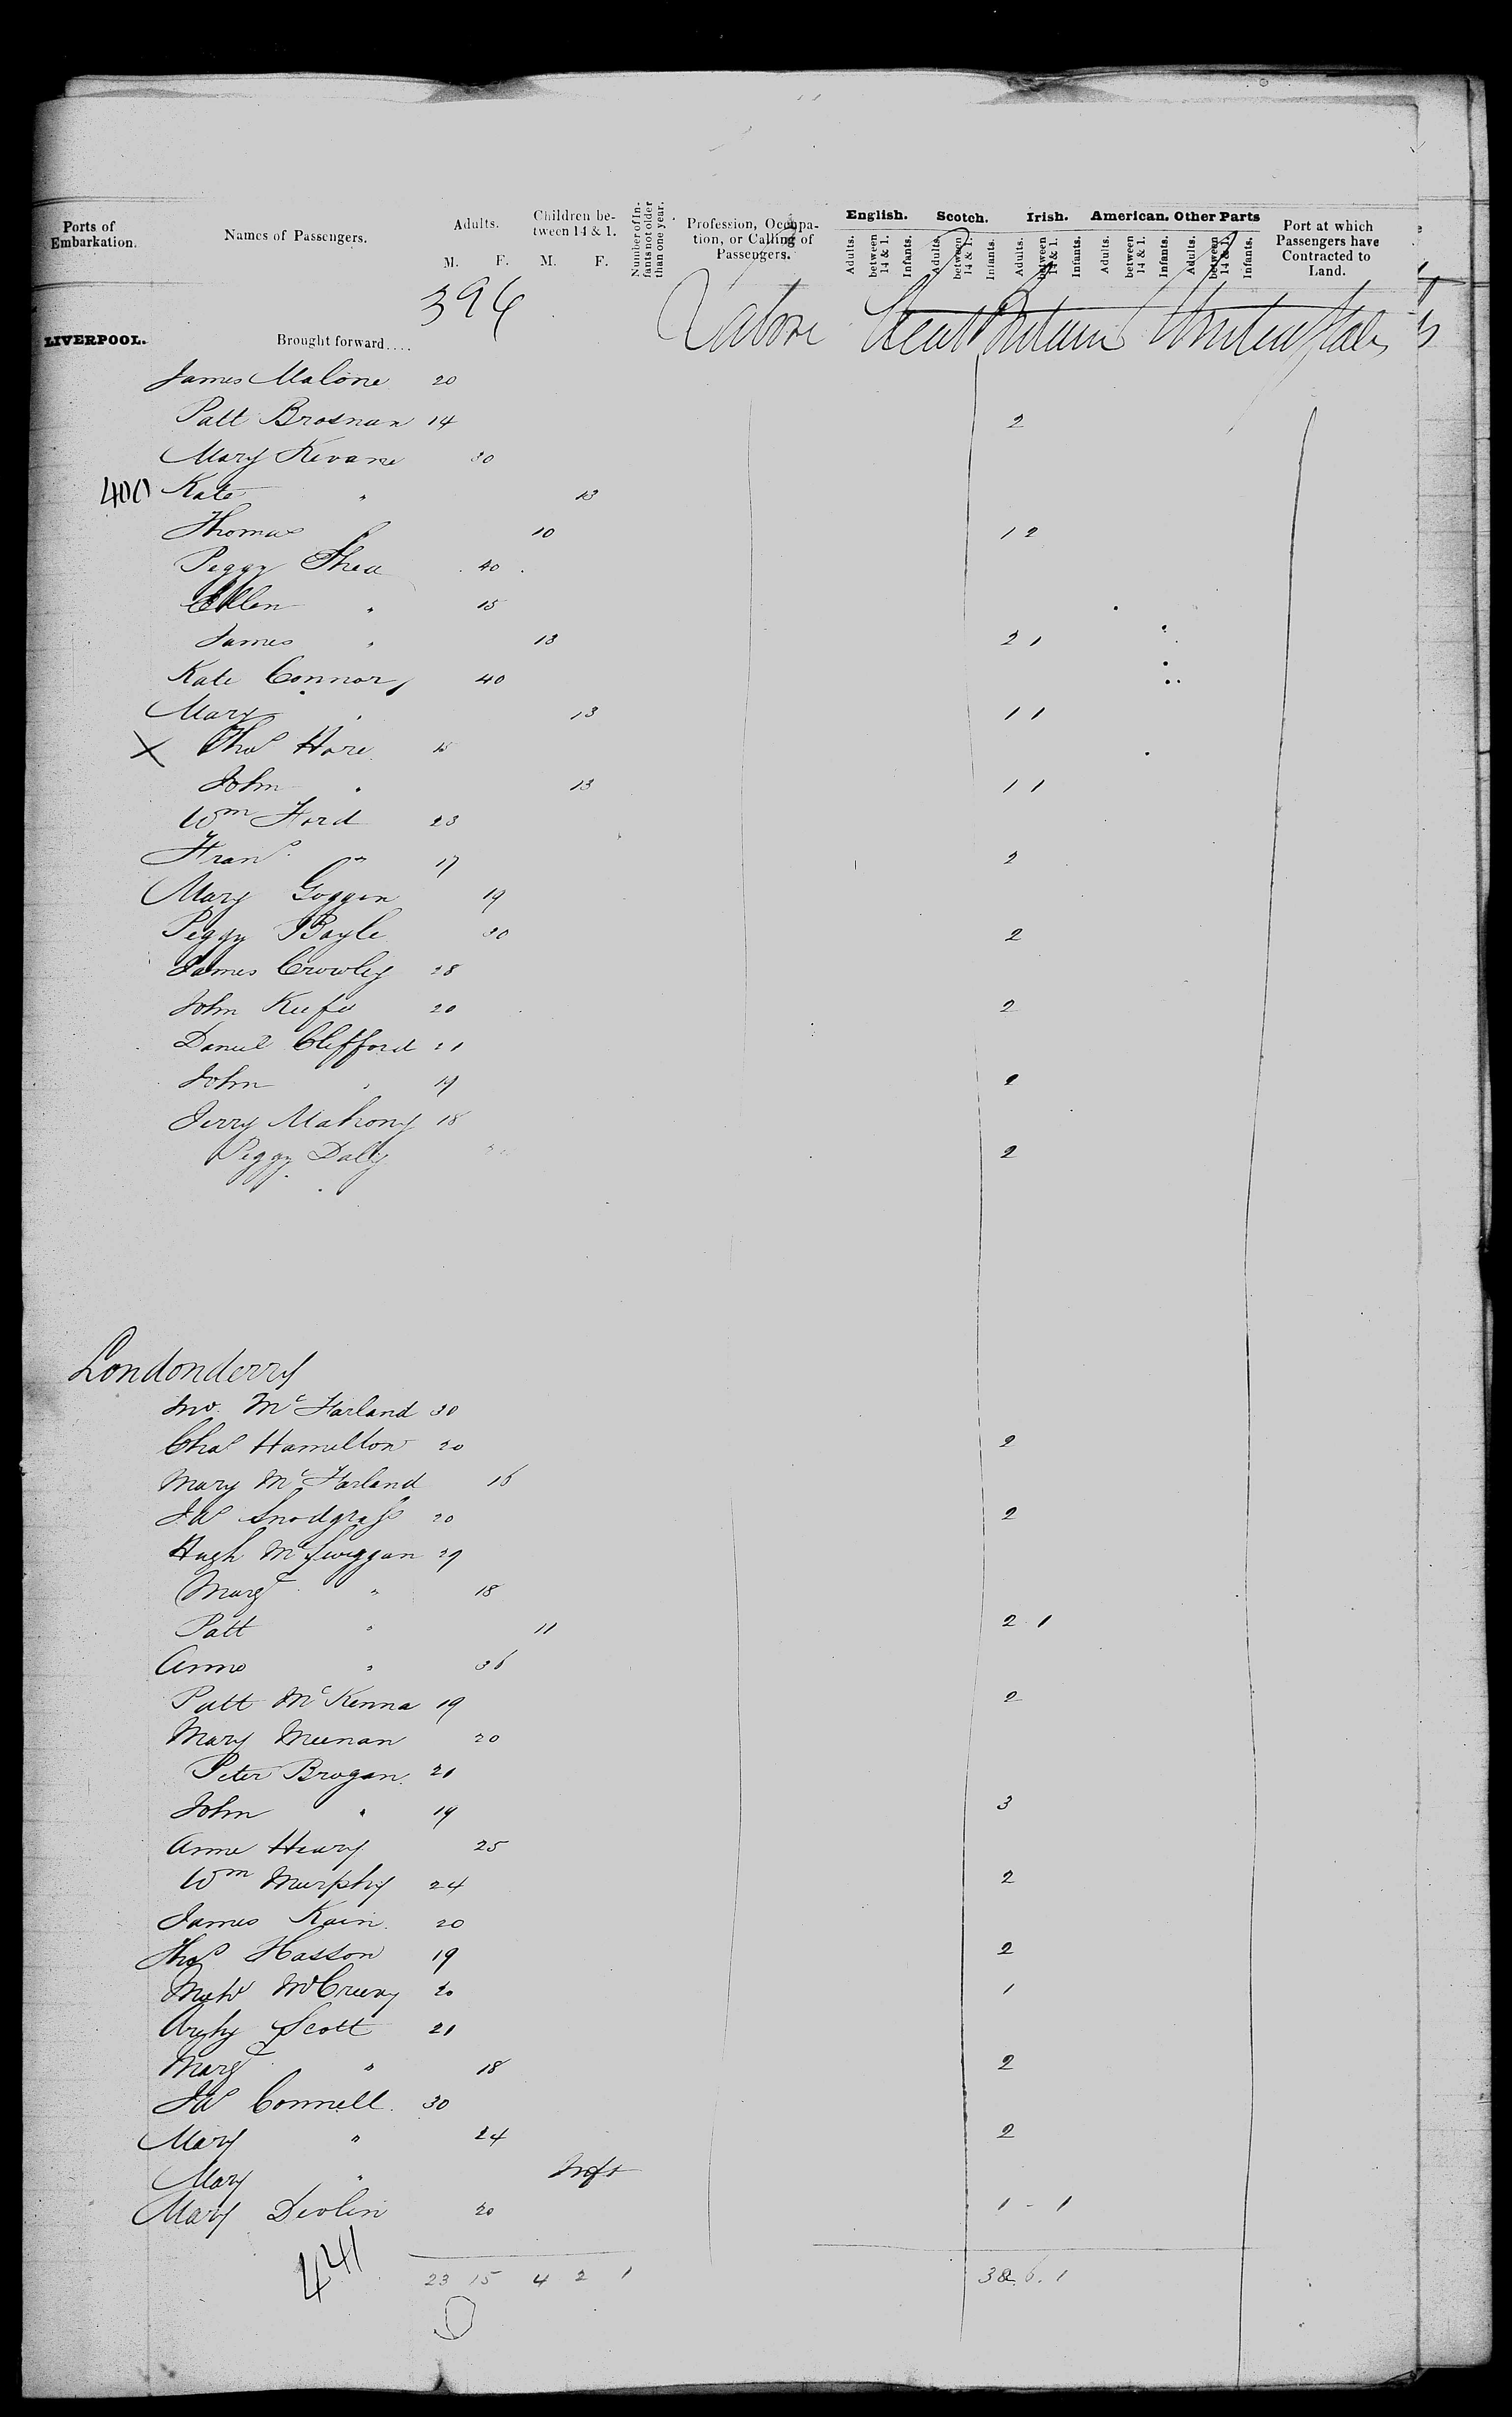 Ports of Embarkation. Names of Passengers. Adults. M. F. Children between 14 & 1. M. F. Number of Infants not older than one year. Profession, Occupation, or Calling of Passengers. English. Adults. between 14 & 1. Infants. Scotch. Adults. between 14 & 1. Infants. Irish. Adults. between 14 & 1. Infants. American. Adults. between 14 & 1. Infants. Other Parts Adults. between 14 & 1. Infants. Port at which Passengers have Contracted to Land.
396
Labore Great Britain United States
LIVERPOOL. Brought forward....
James Malone 20
Patt Brosnan 14 2
Mary Kevane 30
400 Kate " 13
Thomas " 10 1 2
Peggy Shea 40
Ellen " 15
James " 13 2 1
Kate Connor 40
Mary " 13 1 1
X Thos Hore 15
John " 13 1 1
Wm Ford 23
Frans " 17 2
Mary Goggin 19
Peggy Boyle 30 2
James Crowley 28
John Keefe 20 2
Daniel Clifford 21
John " 19 2
Jerry Mahony 18
Peggy Daly 2
Londonderry
Jno. McFarland 30
Chas Hamilton 20 2
Mary McFarland 16
Jas Snodgrass 20 2
Hugh McSwiggan 29
Margt " 18
Patt " 11 2 1
Anne " 36
Patt McKenna 19 2
Mary Meenan 20
Peter Brogan 21
John " 19 3
Anne Heary 25
Wm Murphy 24 2
James Kain 20
Thos Hasson 19 2
McCreery 20 1
Archy Scott 21
Margt " 18 2
Jas Connell 30
Mary " 24 2
Mary " Inft
Mary Devlin 20 1 - 1
441 23 15 4 2 1 38. 6. 1